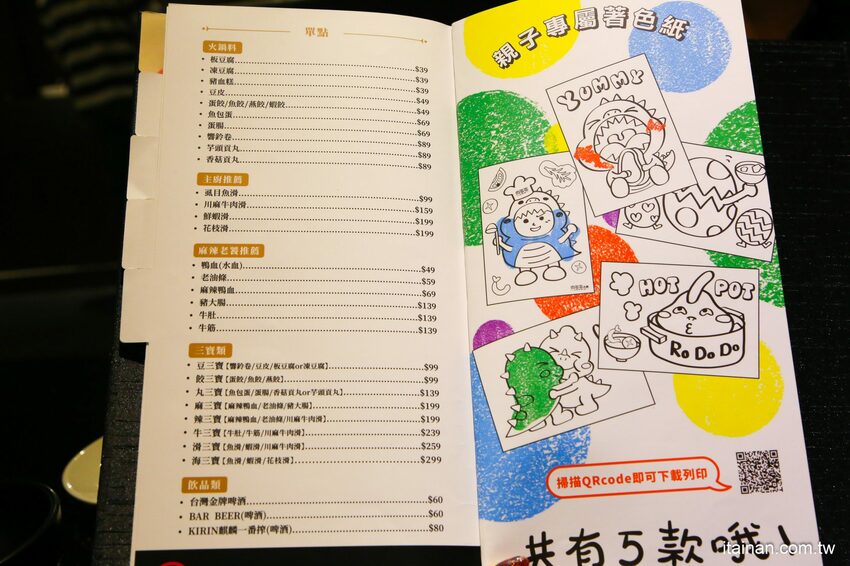 單點
火鍋料
• 板豆腐 $39
• 凍豆腐 $39
• 豬血糕 $39
• 豆皮 $49
• 蛋餃/魚餃/燕餃/蝦餃 $49
• 魚包蛋 $69
• 蛋腸 $69
• 響鈴卷 $89
• 芋頭貢丸 $89
• 香菇貢丸 $89
主廚推薦
• 虱目魚滑 $99
• 川麻牛肉滑 $159
• 鮮蝦滑 $199
• 花枝滑 $199
麻辣老饕推薦
• 鴨血(水血) $49
• 老油條 $59
• 麻辣鴨血 $69
• 豬大腸 $139
• 牛肚 $139
• 牛筋 $139
三寶類
• 豆三寶【響鈴卷/豆皮/板豆腐or凍豆腐】 $99
• 餃三寶【蛋餃/魚餃/燕餃】 $99
• 丸三寶【魚包蛋/蛋腸/香菇貢丸or芋頭貢丸】 $139
• 麻三寶【麻辣鴨血/老油條/豬大腸】 $199
• 辣三寶【麻辣鴨血/老油條/川麻牛肉滑】 $199
• 牛三寶【牛肚/牛筋/川麻牛肉滑】 $239
• 滑三寶【魚滑/蝦滑/川麻牛肉滑】 $259
• 海三寶【魚滑/蝦滑/花枝滑】 $299
飲品類
• 台灣金牌啤酒 $60
• BAR BEER(啤酒) $60
• KIRIN麒麟一番搾(啤酒) $80
親子專屬著色紙
YUMMY
HOT POT
Ro Do Do
掃描QRcode即可下載列印
共有5款哦!
itainan.com.tw